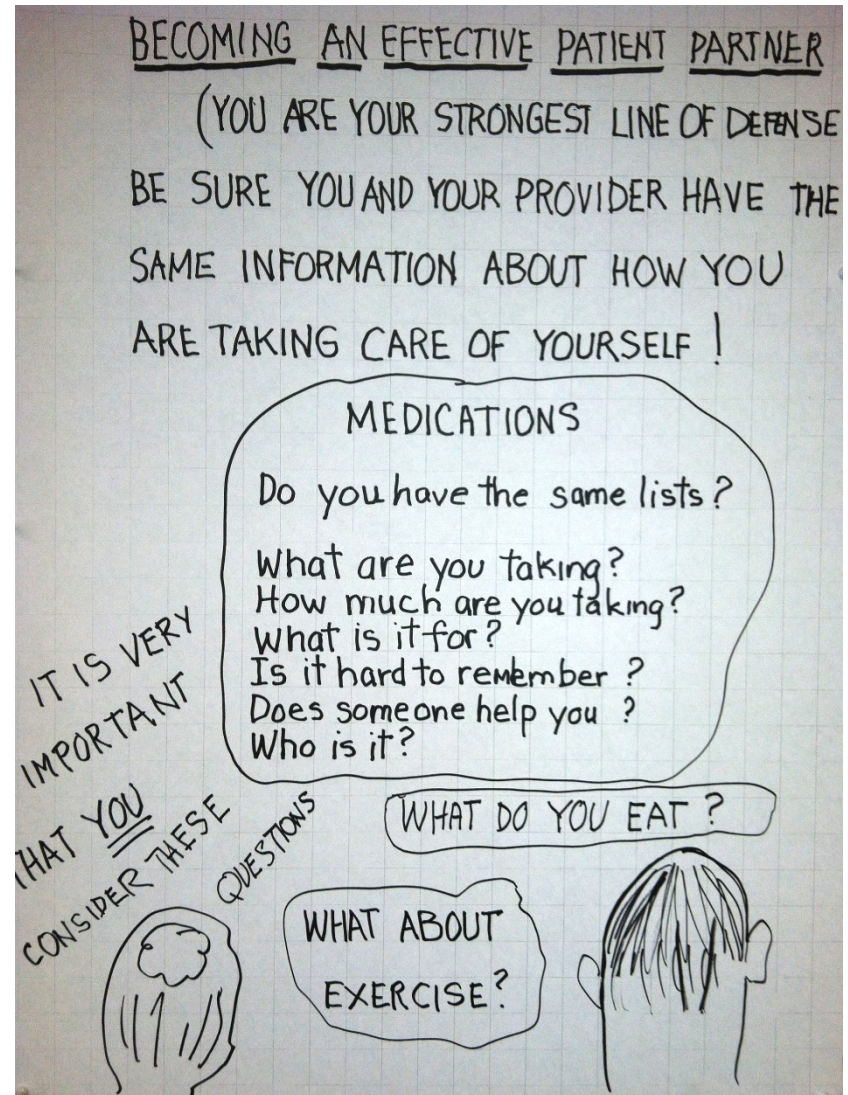 BECOMING AN EFFECTIVE PATIENT PARTNER
(YOU ARE YOUR STRONGEST LINE OF DEFENSE
BE SURE YOU AND YOUR PROVIDER HAVE THE
SAME INFORMATION ABOUT HOW YOU
ARE TAKING CARE OF YOURSELF!
MEDICATIONS
Do you have the same lists?
What are you taking?
How much are you taking?
What is it for?
Is it hard to remember?
Does someone help you?
Who is it?
IT IS VERY
IMPORTANT
THAT YOU
CONSIDER THESE
QUESTIONS
WHAT DO YOU EAT?
WHAT ABOUT
EXERCISE?